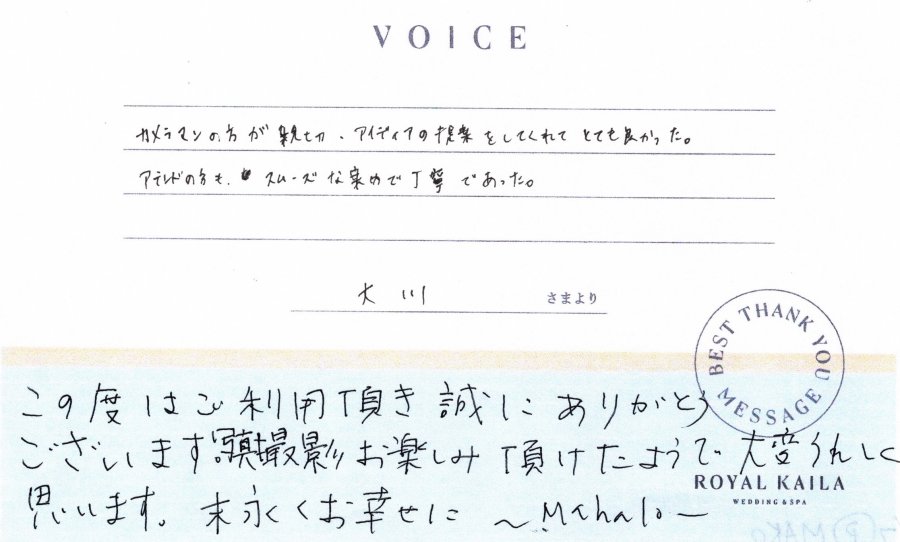 VOICE
カメラマンの方が親切、アイディアの提案をしてくれてとても良かった。
アテンドの方も、スムーズな案内で丁寧であった。
大川 さまより
BEST THANK YOU MESSAGE
この度はご利用頂き誠にありがとう
ございます。撮影お楽しみ頂けたようで大変うれしく
ROYAL KAILA
WEDDING & SPA
思います。末永くお幸せに ～Mahalo～